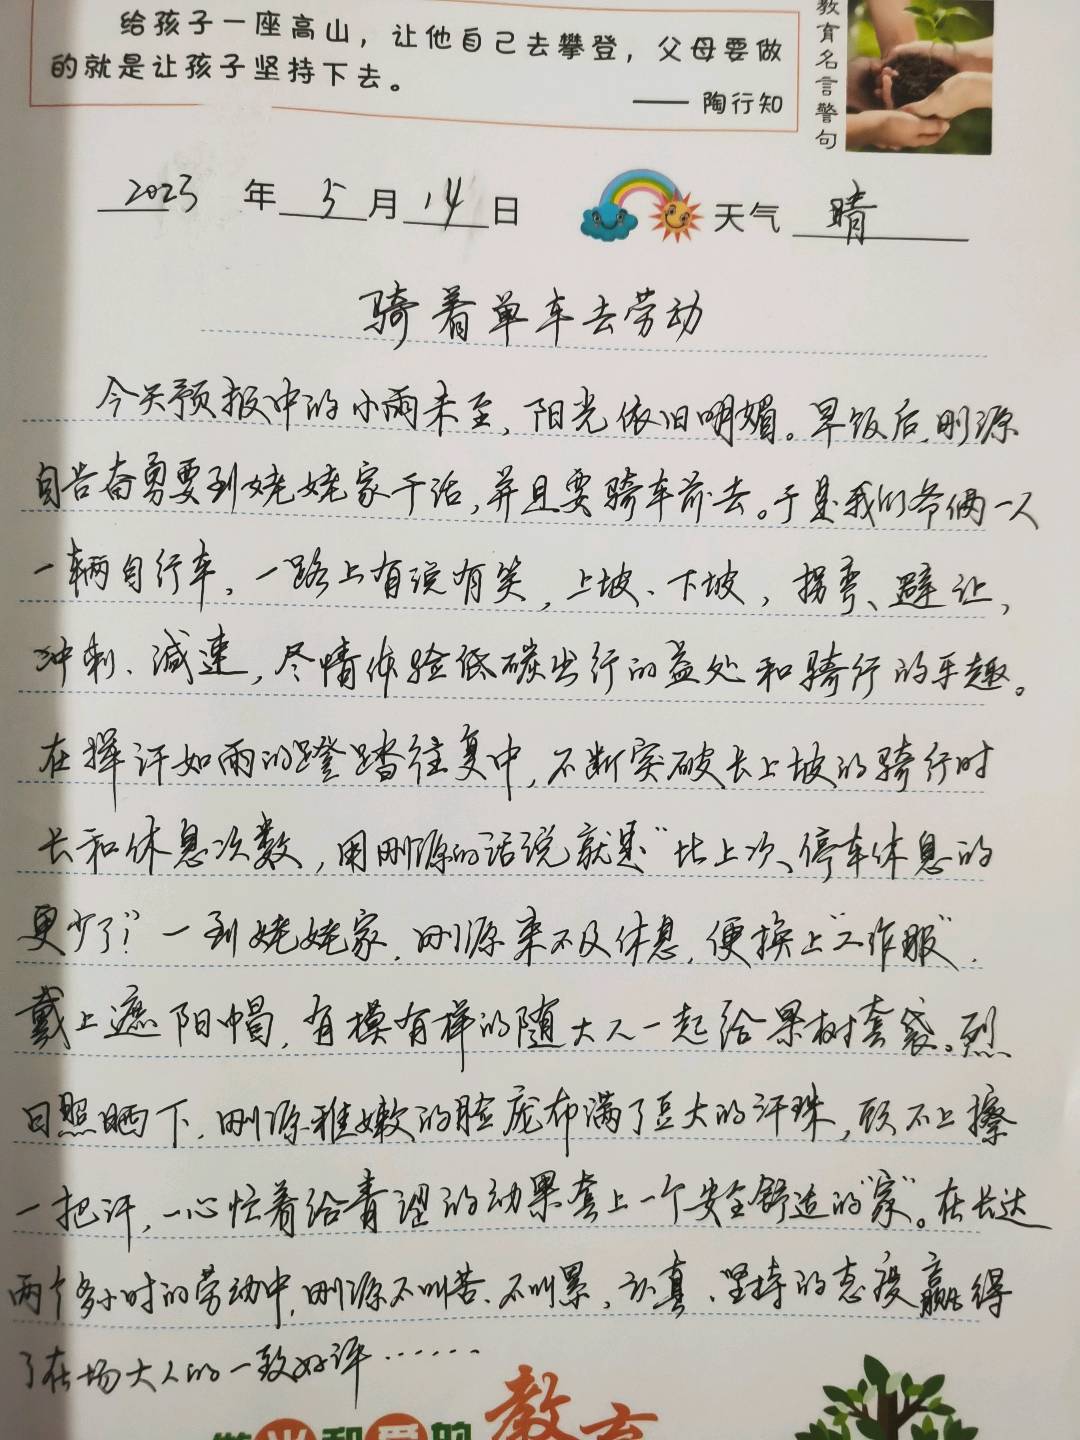 给孩子一座高山，让他自己去攀登，父母要做
的就是让孩子坚持下去。
—— 陶行知
教育名言警句
2023 年 5 月 14 日 天气 晴
骑着单车去劳动
今天预报中的小雨未至，阳光依旧明媚。早饭后，刚源
自告奋勇要到姥姥家干活，并且要骑车前去。于是我们爷俩一人
一辆自行车，一路上有说有笑，上坡、下坡，拐弯、避让，
冲刺、减速，尽情体验低碳出行的益处和骑行的乐趣。
在挥汗如雨的蹬踏往复中，不断突破长上坡的骑行时
长和休息次数，用刚源的话说就是“比上次、停车休息的
更少了”！一到姥姥家，刚源来不及休息，便换上“工作服”，
戴上遮阳帽，有模有样的随大人一起给果树套袋。烈
日照晒下，刚源稚嫩的脸庞布满了豆大的汗珠，顾不上擦
一把汗，一心忙着给青涩的幼果套上一个安全舒适的“家”。在长达
两个多小时的劳动中，刚源不叫苦、不叫累，认真、坚持的态度赢得
了在场大人的一致好评……
教育